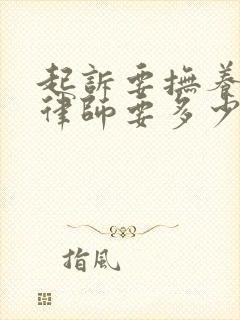 起訴要撫養
律師要多少
指風